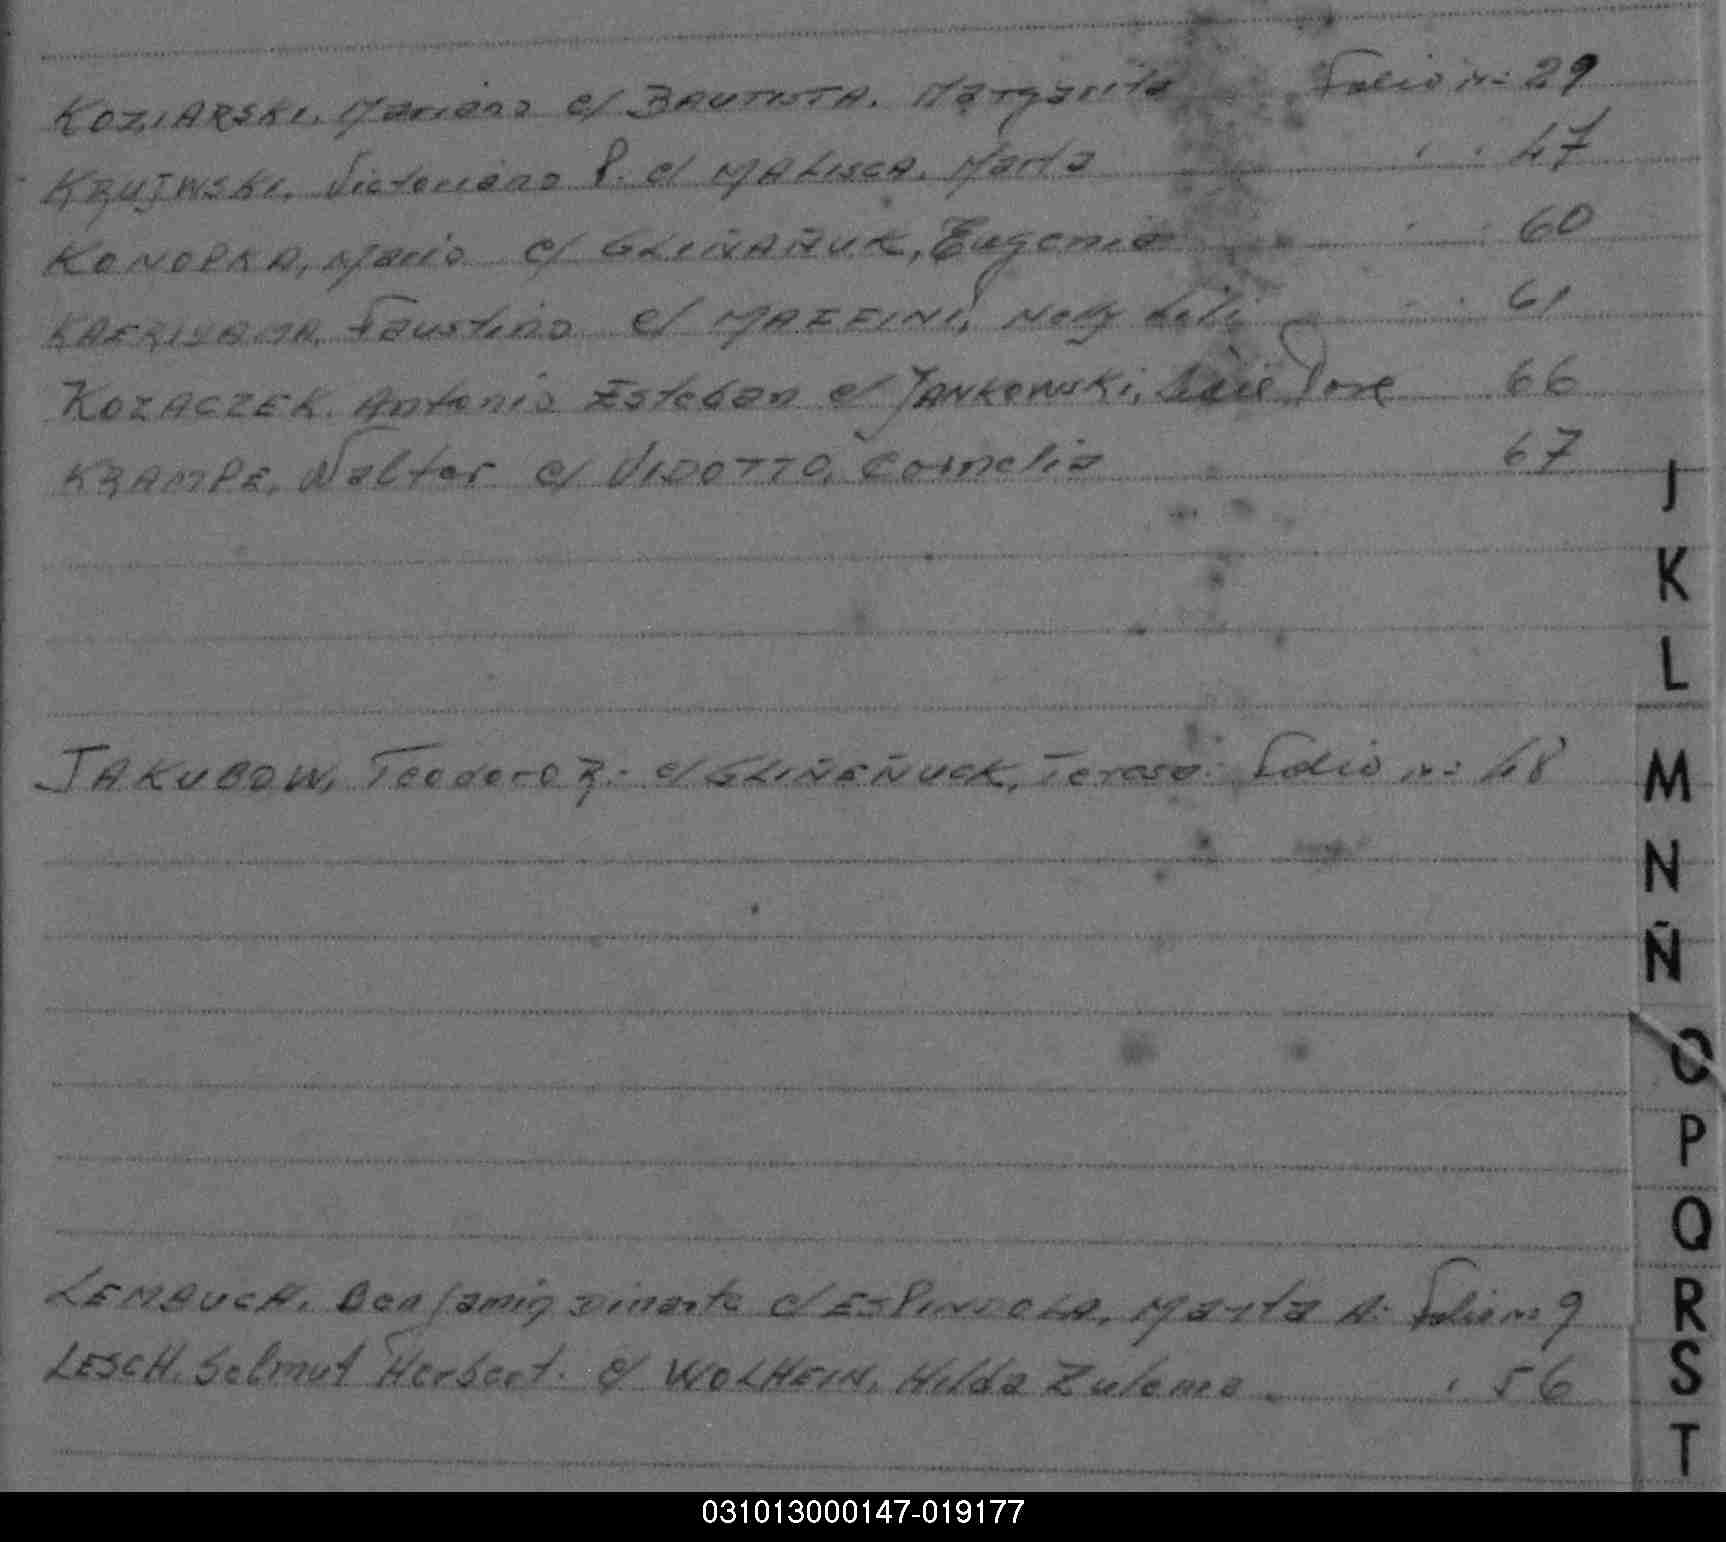 KOZIARSKI, Mariano c/ BAUTISTA, Margarita Folio nº 29
KRUJWSKI, Victoriano P. c/ MALISCA, Marta " " 47
KONOPKA, Mario c/ GLIÑAÑUK, Eugenia " " 60
Faustino c/ Nelly " " 61
KOZACZEK, Antonio Esteban c/ JANKOWSKI, 66
KRAMPE, Walter c/ VIDOTTO, Cornelia 67
J
K
L
JAKUBOW, Teodoro R. c/ GLIÑEÑUCK, Teresa. Folio nº 48
M
N
Ñ
O
P
Q
LEMBUCH, Benjamin Duarte c/ ESPINDOLA, Marta A. Folio nº 9
R
LESCH, Selmut Herbert. c/ WOLHEIN, Hilda Zulema " 56
S
T
031013000147-019177